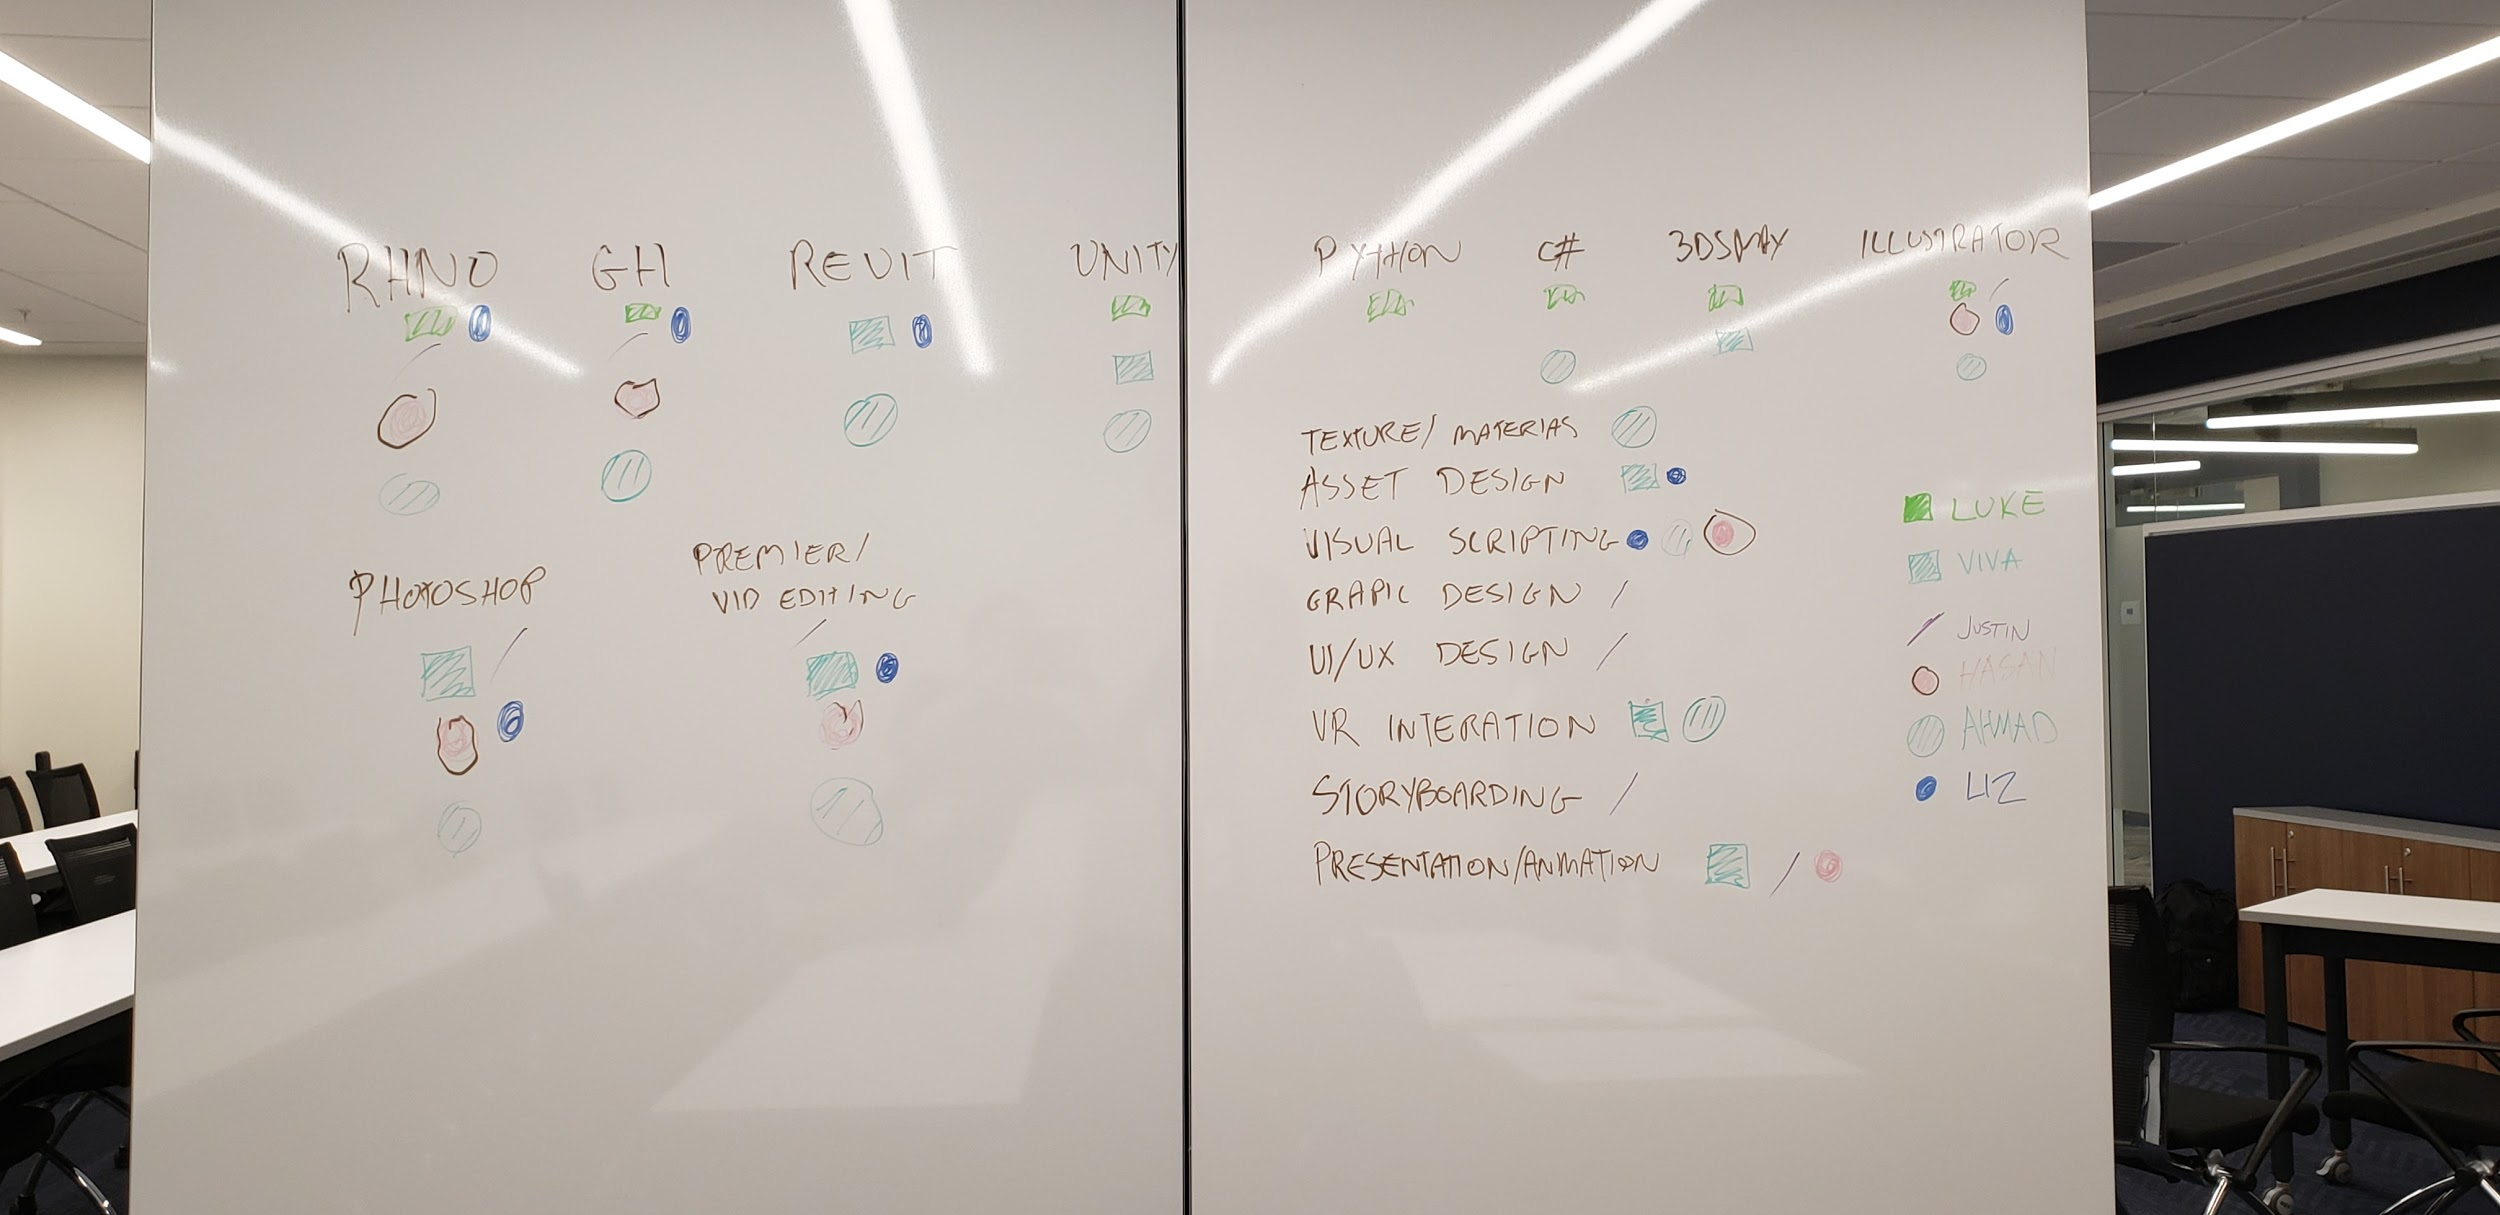 RHNO GH REVIT UNITY
PHOTOSHOP
PREMIER/
VID EDITING
PYTHON C# 3DSMAX ILLUSTRATOR
TEXTURE/ MATERIAS
ASSET DESIGN
VISUAL SCRIPTING
GRAPIC DESIGN /
UI/UX DESIGN /
VR INTERATION
STORYBOARDING /
PRESENTATION/ANIMATION /
LUKE
VIVA
/ JUSTIN
HASAN
AHMAD
LIZ